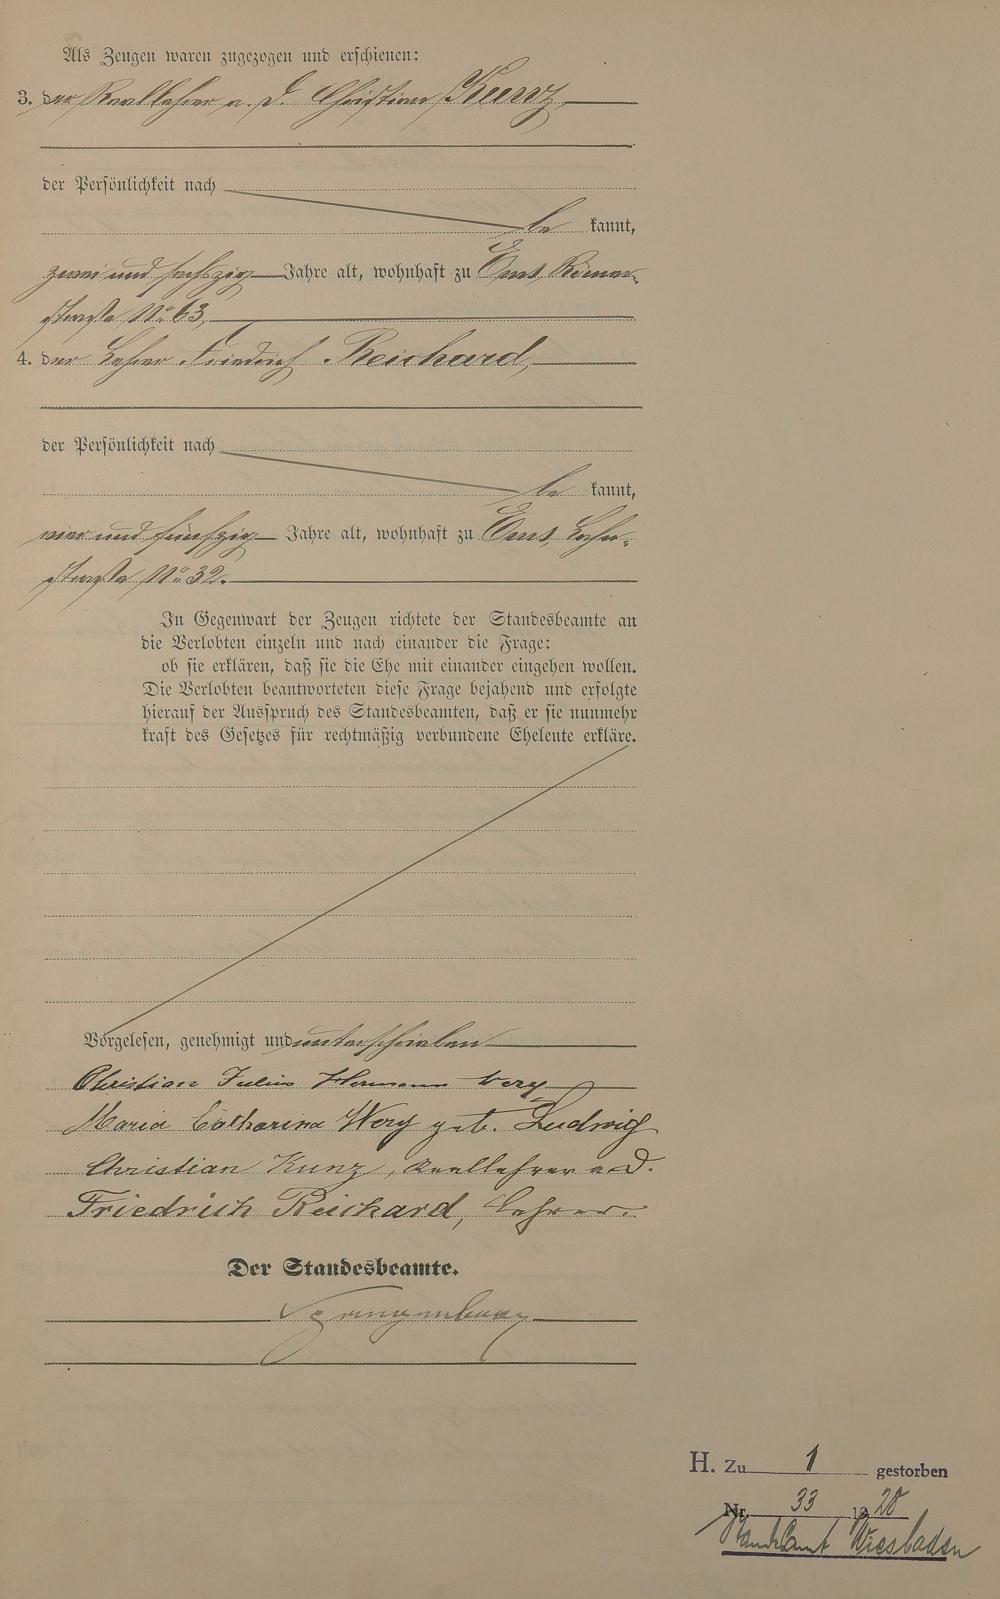 Als Zeugen waren zugezogen und erschienen:
3. der Reallehrer a. D. Christian Kunz,
der Persönlichkeit nach
be kannt,
zwei und sechszig Jahre alt, wohnhaft zu Ems, Römer-
straße No 63,
4. der Lehrer Friedrich Reichard,
der Persönlichkeit nach
be kannt,
vier und fünfzig Jahre alt, wohnhaft zu Ems, Lahn-
straße No 32.
In Gegenwart der Zeugen richtete der Standesbeamte an
die Verlobten einzeln und nach einander die Frage:
ob sie erklären, daß sie die Ehe mit einander eingehen wollen.
Die Verlobten beantworteten diese Frage bejahend und erfolgte
hierauf der Ausspruch des Standesbeamten, daß er sie nunmehr
kraft des Gesetzes für rechtmäßig verbundene Eheleute erkläre.
Vorgelesen, genehmigt und unterschrieben
Christian Julius Hermann Wery
Maria Catharina Wery geb. Ludwig
Christian Kunz, Reallehrer a. D.
Friedrich Reichard, Lehrer.
Der Standesbeamte.
Spangenberg
H. Zu 1 gestorben
Nr. 33 19 28
Standesamt Wiesbaden